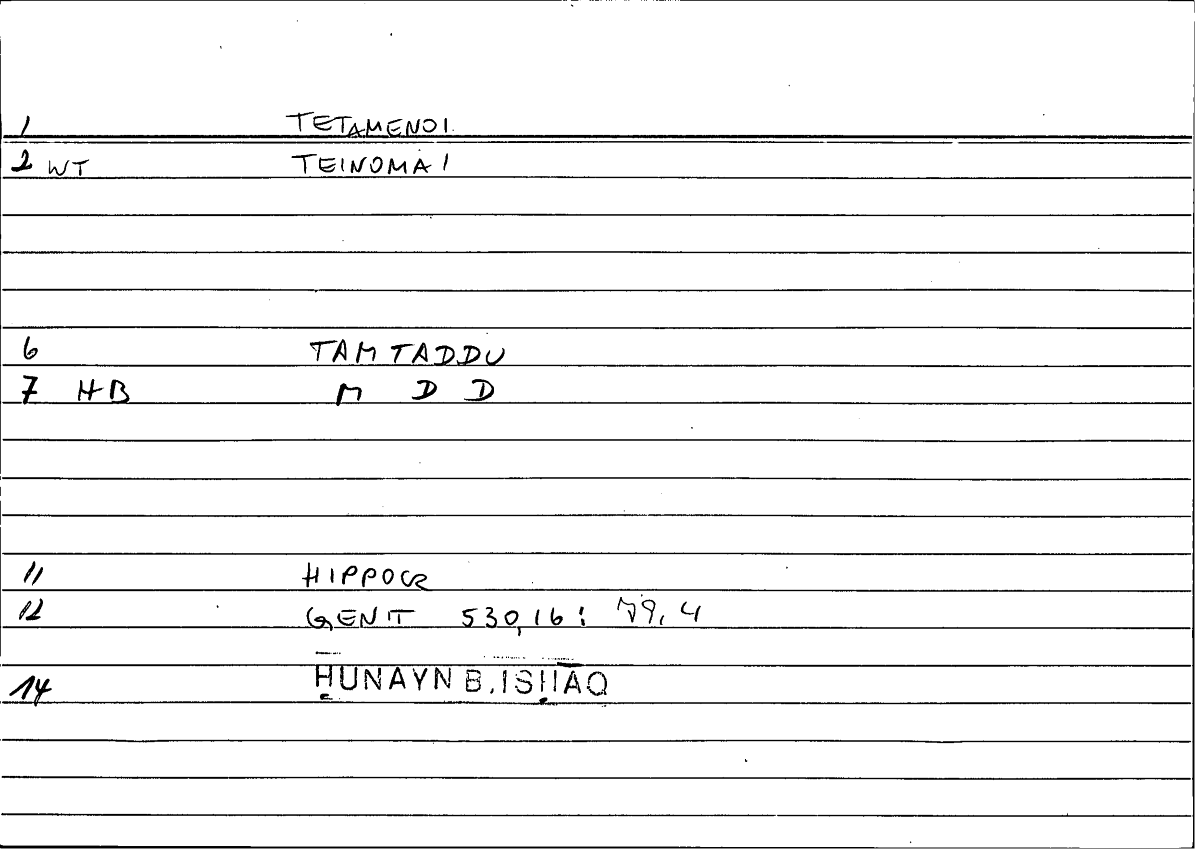 1 TETAMENOI
2 WT TEINOMAI
6 TAMTADDU
7 HB M D D
11 HIPPOCR
12 GENIT 530,16: 79,4
14 ḤUNAYN B. ISḤĀQ